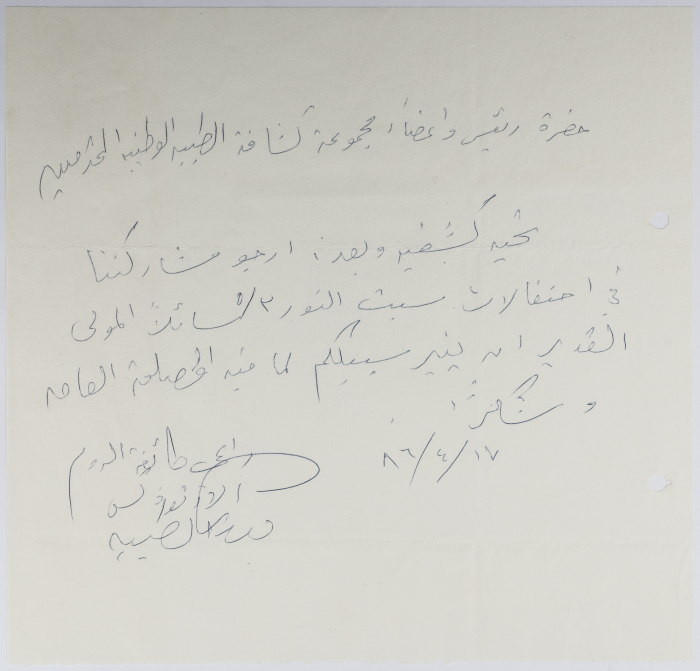 حضرة رئيس واعضاء مجموعة كشافة الطيبه الوطنيه المحترمين
تحيه كشفيه وبعد، ارجو مشاركتنا
في احتفالات سبت النور ٥/٣ سائلاً المولى
القدير ان ينير سبيلكم لما فيه المصلحة العامه
وشكراً.
٨٦/٤/١٧
راعي طائفة الروم
الارثوذكس
الطيبه